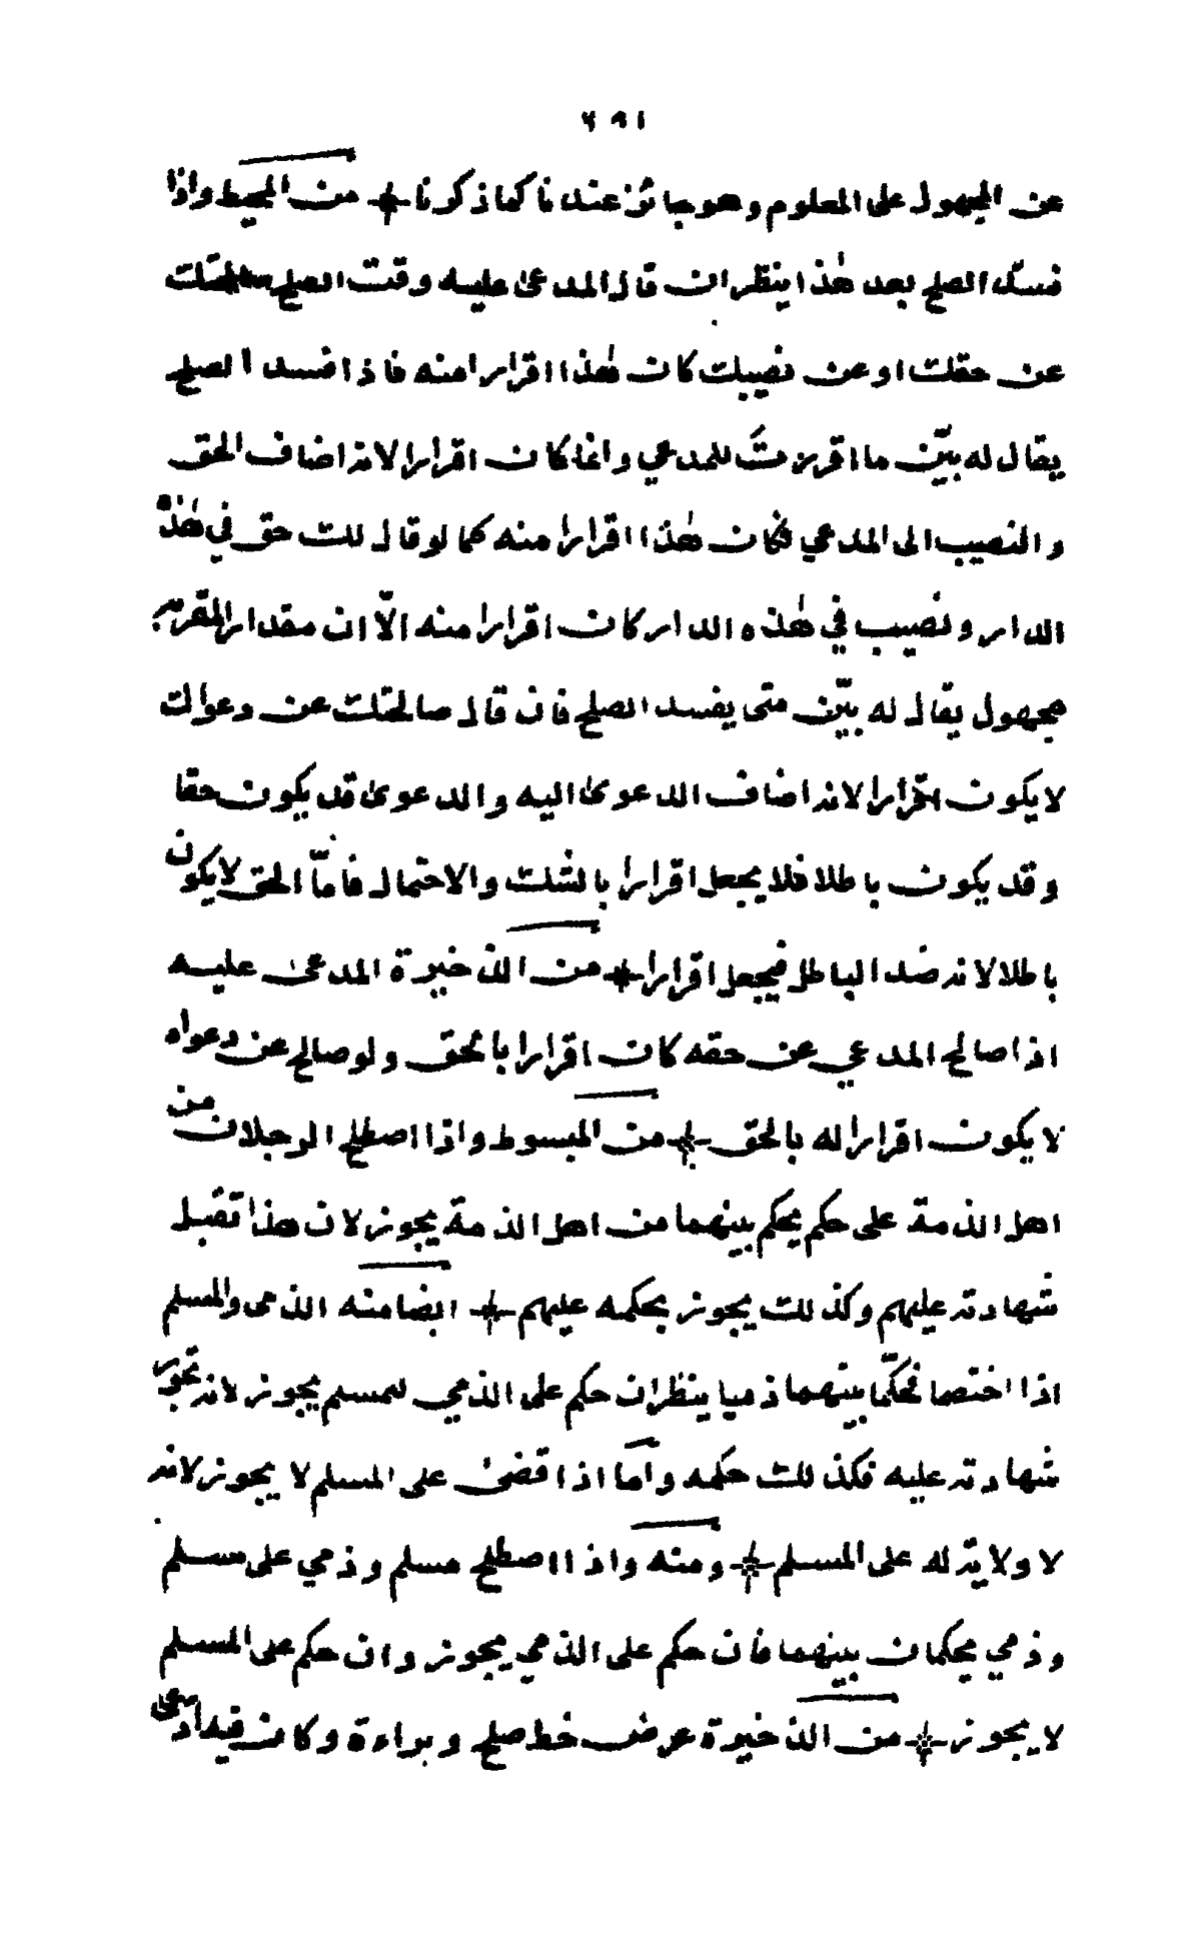 ٢٩١
عن المجهول على المعلوم وهو جائز عندنا كما ذكرنا من المحيط واذا
فسد الصلح بعد هٰذا ينظر ان قال المدعى عليه وقت الصلح صالحتك
عن حقك او عن نصيبك كان هٰذا اقرارا منه فاذا فسد الصلح
يقال له بيّن ما اقررتَ للمدعي وانما كان اقرارا لانه اضاف الحق
والنصيب الى المدعي فكان هٰذا اقرارا منه كما لو قال لك حق في هٰذه
الدار ونصيب في هٰذه الدار كان اقرارا منه الّا ان مقدار المقر به
مجهول يقال له بيّن متى يفسد الصلح فان قال صالحتك عن دعواك
لا يكون اقرارا لانه اضاف الدعوى اليه والدعوى قد يكون حقا
وقد يكون باطلا فلا يجعل اقرارا بالشك والاحتمال فامّا الحق لا يكون
باطلا لانه ضد الباطل فيجعل اقرارا من الذخيرة المدعى عليه
اذا صالح المدعي عن حقه كان اقرارا بالحق ولو صالح عن دعواه
لا يكون اقرارا له بالحق من المبسوط واذا اصطلح الرجلان من
اهل الذمة على حكم يحكم بينهما من اهل الذمة يجوز لان هذا تقبل
شهادته عليهم وكذلك يجوز بحكمه عليهم ايضا منه الذمى والمسلم
اذا اختصما فحكّما بينهما ذميا ينظر ان حكم على الذمي للمسلم يجوز لانه تجوز
شهادته عليه فكذلك حكمه وامّا اذا قضى على المسلم لا يجوز لانه
لا ولاية له على المسلم ومنه واذا اصطلح مسلم وذمي على مسلم
وذمي يحكمان بينهما فان حكم على الذمي يجوز وان حكم على المسلم
لا يجوز من الذخيرة عرض خط صلح وبراءة وكان فيه ادعى